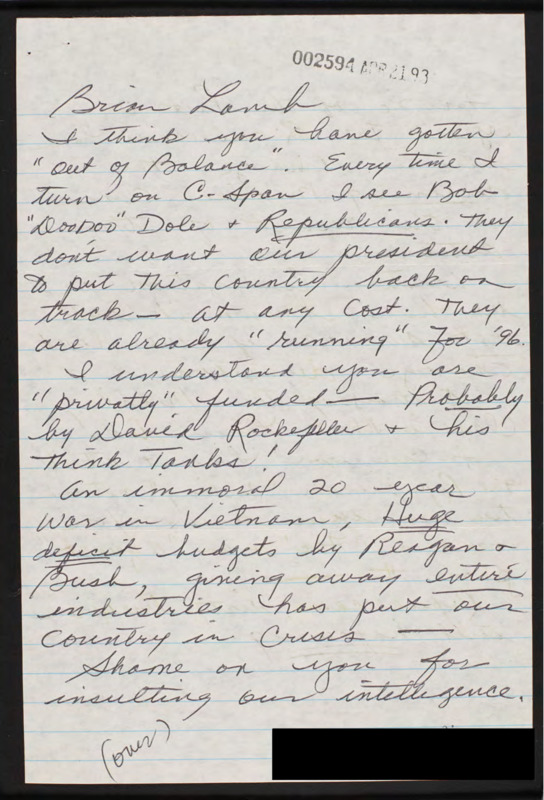 002594 APR 21 93
Brian Lamb
I think you have gotten
"out of Balance". Every time I
turn on C-Span I see Bob
"DooDoo" Dole + Republicans. They
don't want our president
to put this country back on
track — at any cost. They
are already "running" for '96.
I understand you are
"privatly" funded — Probably
by David Rockefeller + his
Think Tanks!
An immoral 20 year
War in Vietnam, Huge
deficit budgets by Reagan +
Bush, giving away entire
industries has put our
Country in Crisis —
Shame on you for
insulting our intelligence.
(over)